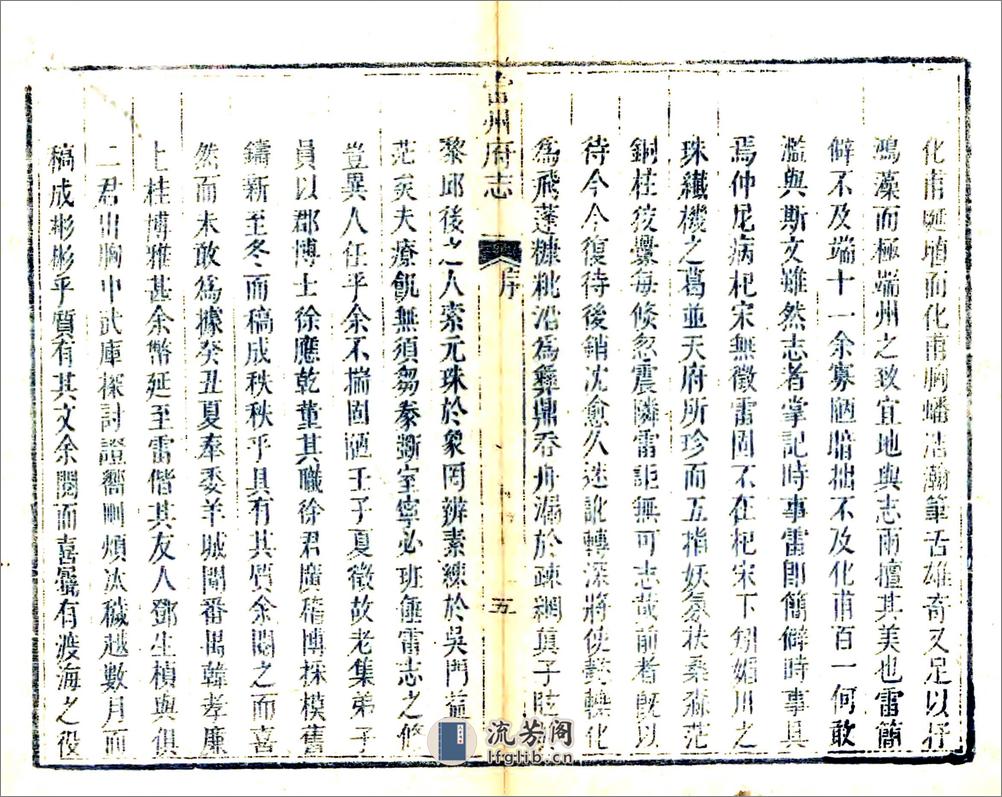 化甫產埴而化甫胸蟠浩瀚筆舌雄奇又足以抒
鴻藻而極端州之致宜地與志兩擅其美也雷簡
僻不及端十一余寡陋暗拙不及化甫百一何敢
濫與斯文雖然志者掌記時事雷郎簡僻時事具
焉仲尼病杞宋無徵雷固不在杞宋下矧媚川之
珠纖機之葛並天府所珍而五指妖氛扶桑淼茫
銅柱疲釁每倏忽震隣雷詎無可志哉前者既以
待今今復待後銷沈愈久迷訛轉深將使 轉化
為飛蓬糠粃沿為彝鼎吞舟漏於疎網真子眩
黎邱後之人索元珠於象罔辨素練於吳門
茫矣夫療飢無須芻豢斲室寧必班倕雷志之修
豈異人任乎余不揣固陋壬子夏徵故老集弟子
員以郡博士徐應乾董其職徐君廣稽博採模舊
鑄新至冬而稿成秩秩乎具有其質余閱之而喜
然而未敢為據癸丑夏奉委羊城聞番禺韓孝廉
上桂博雅甚余幣延至雷偕其友人鄧生楨與俱
二君出胸中武庫探討證嚮刪煩汰穢越數月而
稿成彬彬乎質有其文余閱而喜 有渡海之役
雷州府志
序
五
流芳阁
lfglib.cn